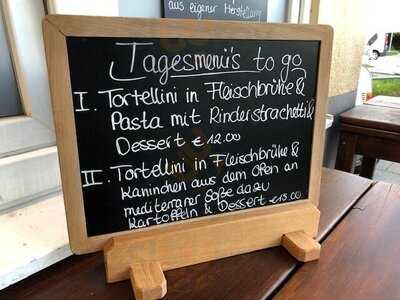 aus eigener Herstellung
Tagesmenü's to go
I. Tortellini in Fleischbrühe &
Pasta mit Rinderstrachetti &
Dessert € 12.00
II. Tortellini in Fleischbrühe &
Kaninchen aus dem Ofen an
mediteraner Soße dazu
Kartoffeln & Dessert € 15.00